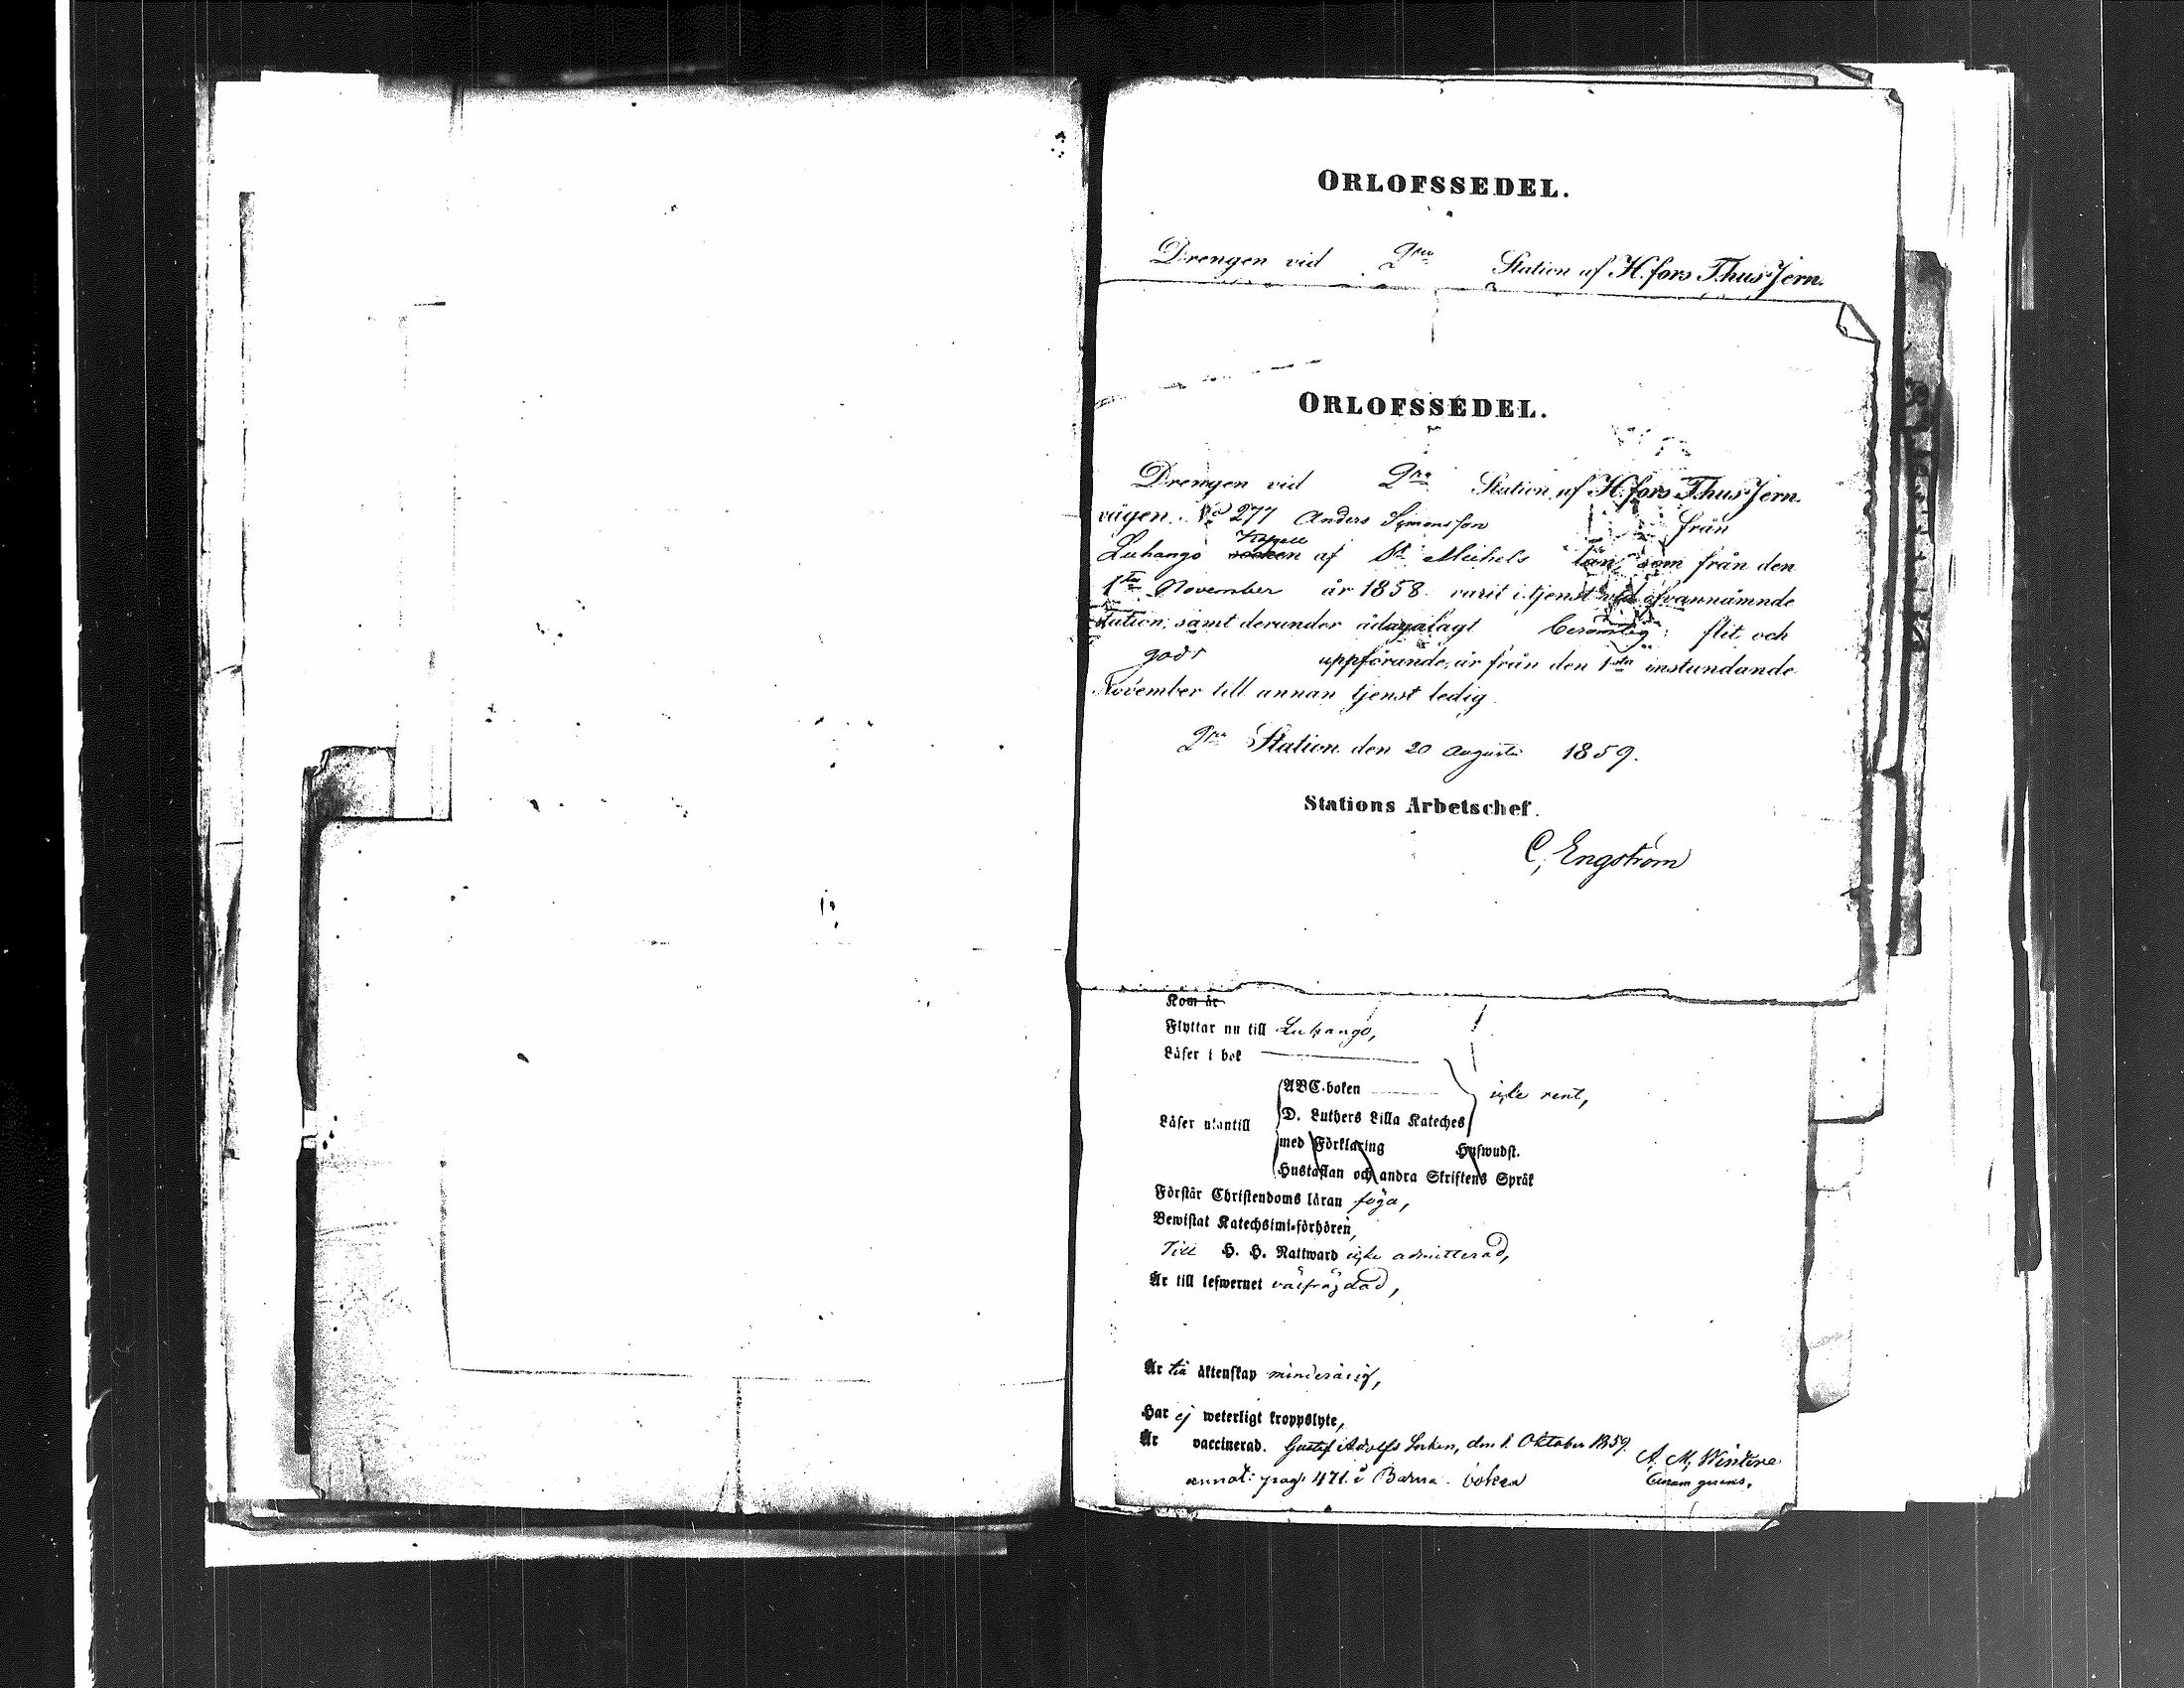 ORLOFSSEDEL.
Drengen vid 2ra Station af H.fors Thus Jern.
ORLOFSSEDEL.
Drengen vid 2ra Station af H.fors Thus Jern.
vägen. No 277 Anders Simonsson från
Luhango Kapell socken af St Michels län, som från den
1sta November år 1858 varit i tjenst vid ofvannämnde
station, samt derunder ådagalagt berömlig flit och
godt uppförande, är från den 1sta instundande
November till annan tjenst ledig.
2ra Station den 20 Augusti 1859.
Stations Arbetschef.
C. Engström
Kom år
Flyttar nu till Luhango,
Läser i bok
ABC-boken icke rent,
Läser utantill D. Luthers Lilla Kateches
med Förklaring Hufwudst.
Hustaflan och andra Skriftens Språk
Förstår Christendoms läran föga,
Bewistat Katechsimi-förhören,
Till H. H. Nattward icke admitterad,
Är till lefwernet välfrägdad,
Är till äktenskap minderårig,
Har ej weterligt kroppslyte,
Är vaccinerad. Gustaf Adolfs Socken, den 1. Oktober 1859.
A. M. Wintere
annot: pag: 471. i Barna boken